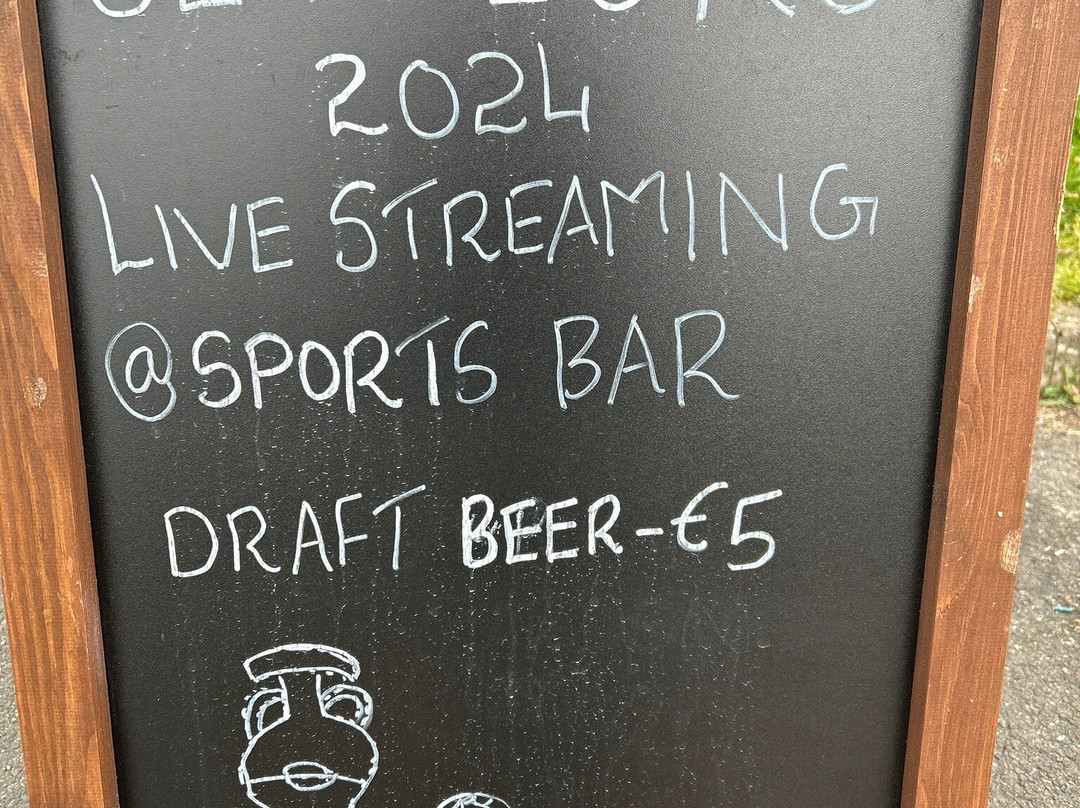 2024
LIVE STREAMING
@SPORTS BAR
DRAFT BEER-€5